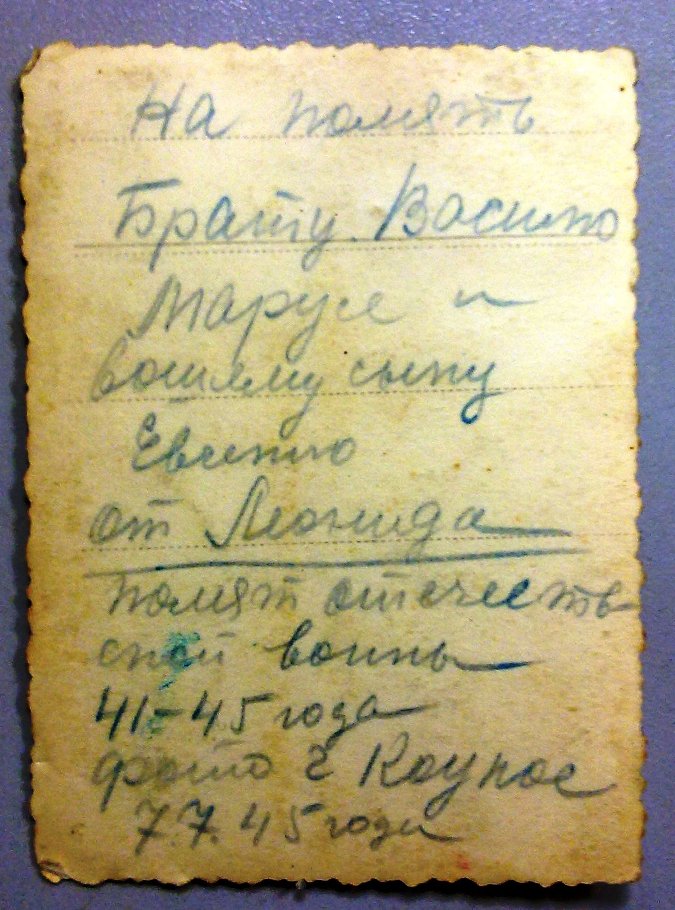 На помять
Брату Василю
Марусе и
вашему сыну
Евгению
от Леонида
помят отечеств-
ской воины
41-45 года
фото г Коунос
7.7.45 года